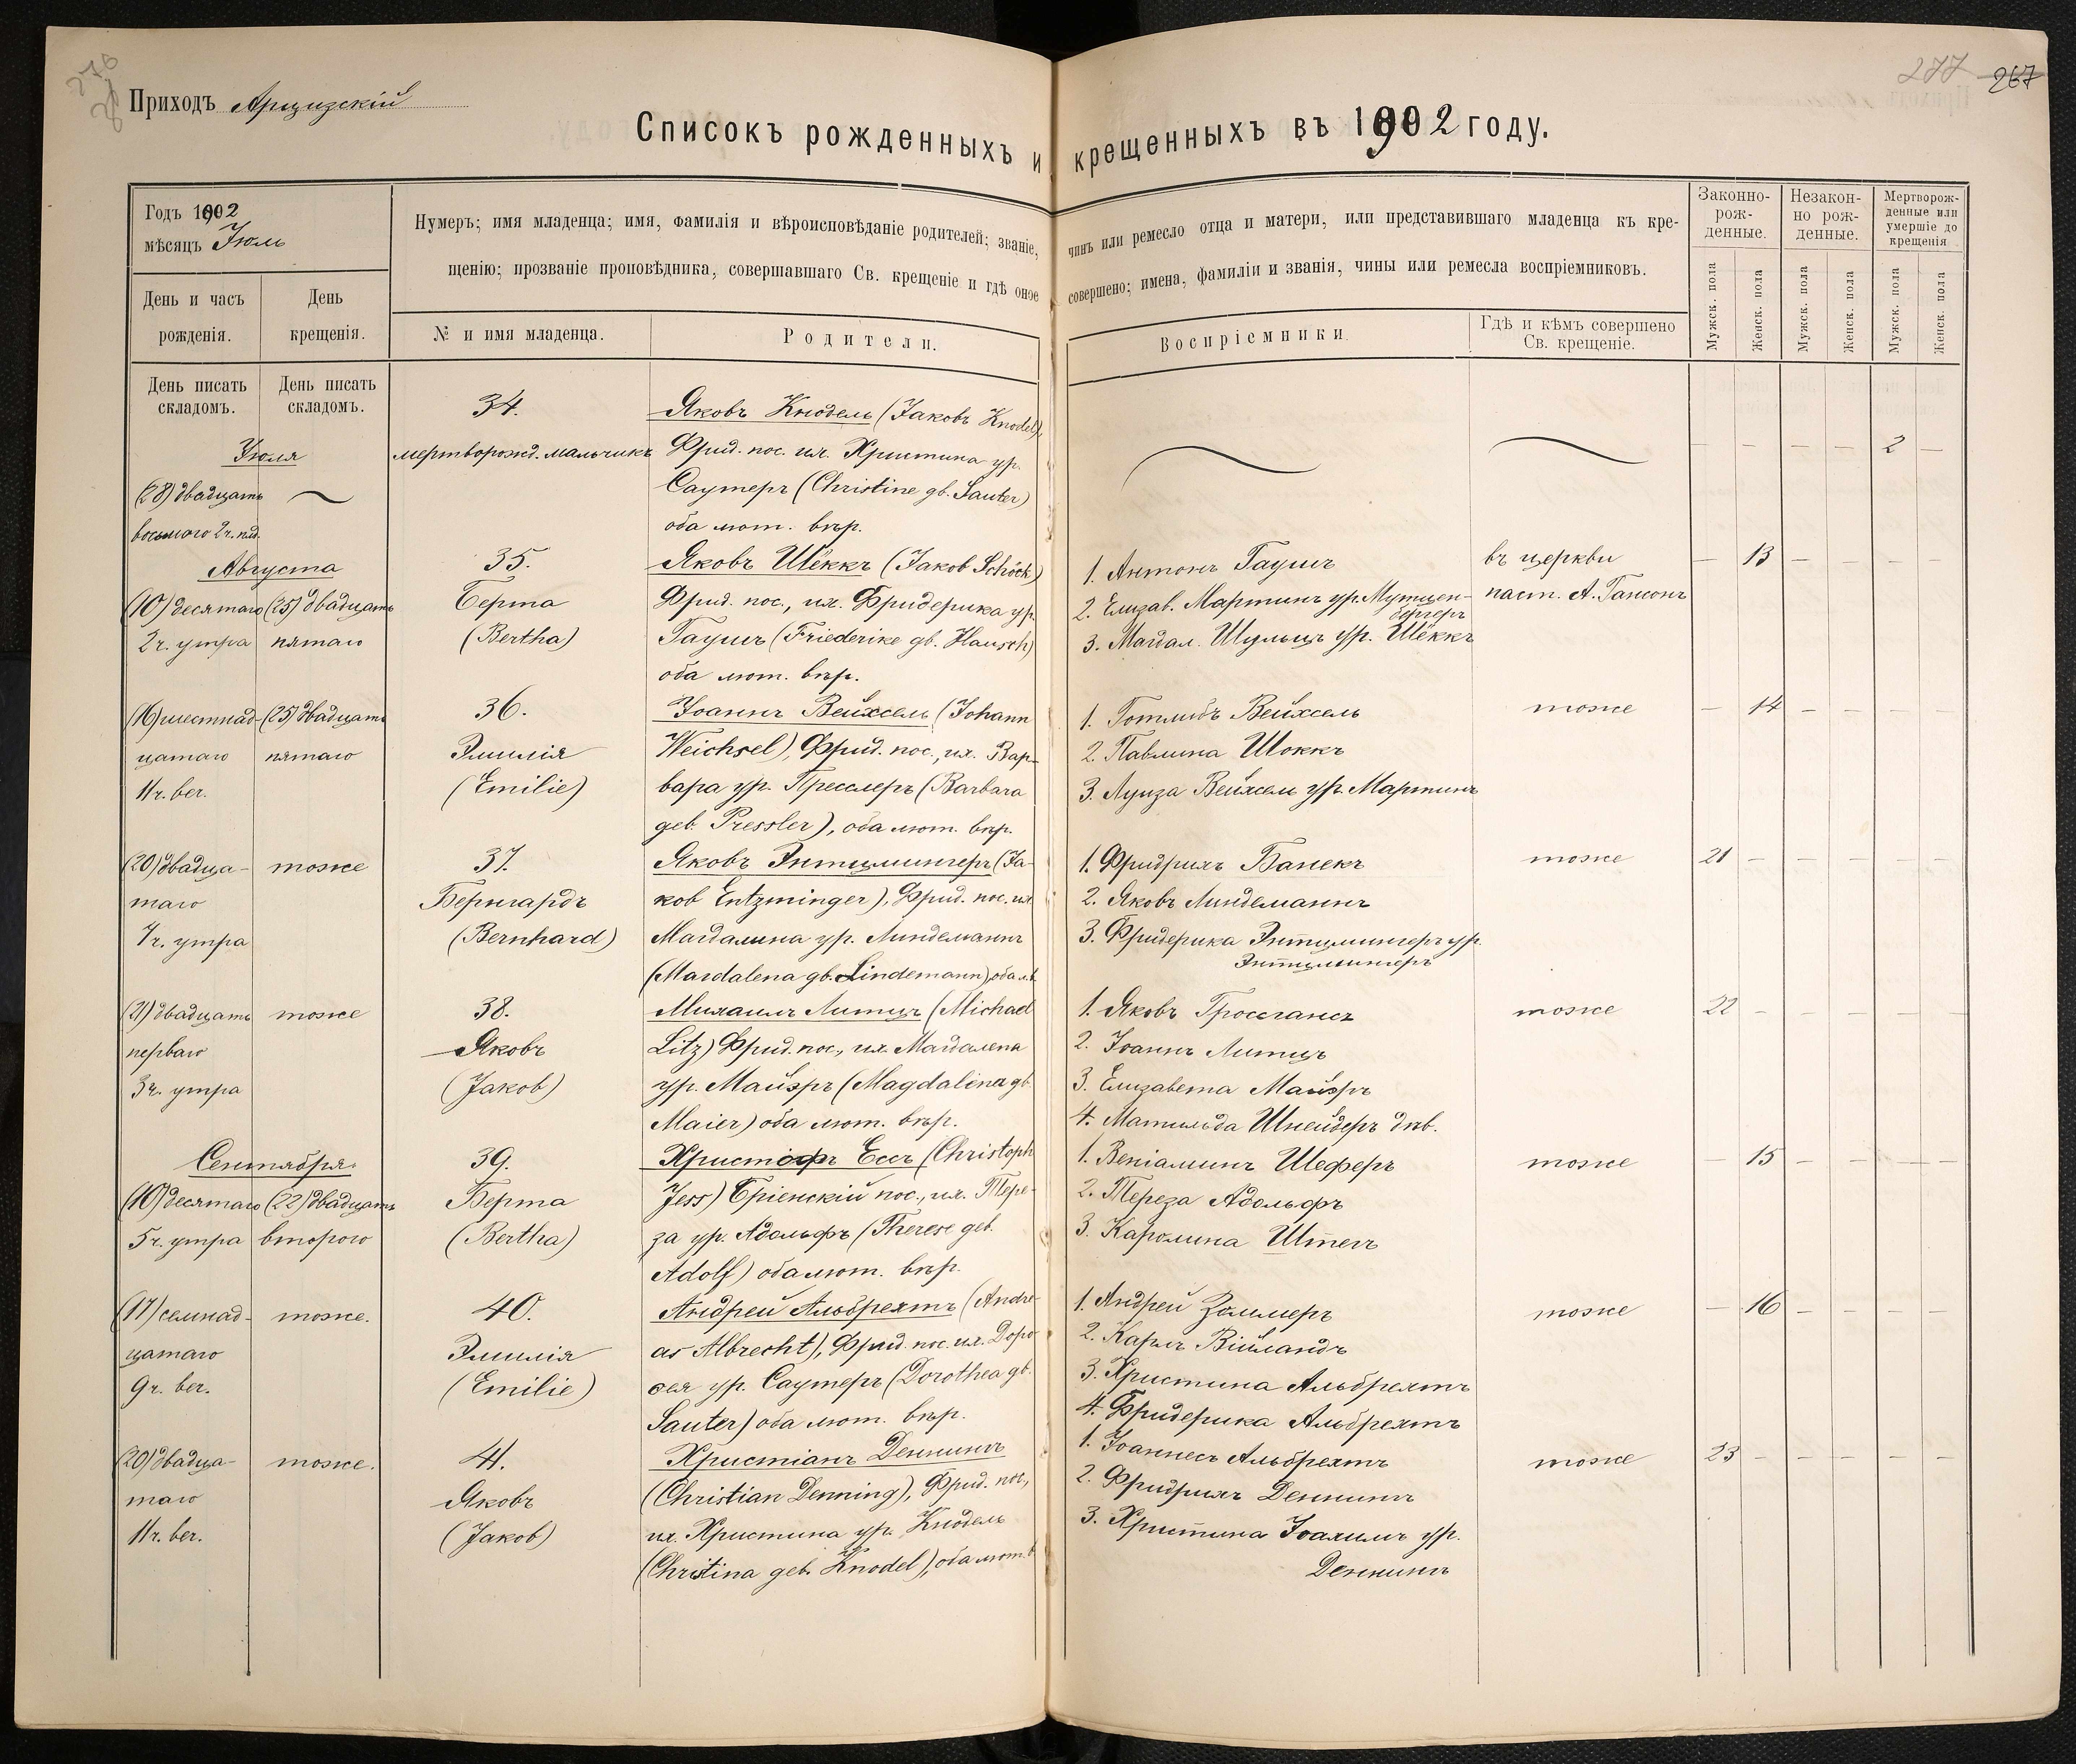 276
277 267
Приходъ Арцизскій
Списокъ рожденныхъ и крещенныхъ въ 1902 году.
Годъ 1902
мѣсяцъ Іюль
День и часъ
рожденія.
День
крещенія.
Нумеръ; имя младенца; имя, фамилія и вѣроисповѣданіе родителей; званіе, чинъ или ремесло отца и матери, или представившаго младенца къ кре-
щенію; прозваніе проповѣдника, совершавшаго Св. крещеніе и гдѣ оное совершено; имена, фамиліи и званія, чины или ремесла воспріемниковъ.
№ и имя младенца.
Родители.
Воспріемники.
Гдѣ и кѣмъ совершено
Св. крещеніе.
Законно-
рож-
денные.
Незакон-
но рож-
денные.
Мертворож-
денные или
умершіе до
крещенія
Мужск. пола
Женск. пола
Мужск. пола
Женск. пола
Мужск. пола
Женск. пола
День писать
складомъ.
День писать
складомъ.
Іюля
(28) двадцать
восьмого 2ч. плд.
34.
мертворожд. мальчикъ
Яковъ Кнодель (Jaкobъ Knodel),
Фрид. пос. их. Христина ур.
Саутеръ (Christine gb. Sauter)
оба лют. вѣр.
— — — — 2 —
Августа
(10) десятаго
2ч. утра
(25) двадцать
пятаго
35.
Берта
(Bertha)
Яковъ Шёккъ (Jaкob Schöck)
Фрид. пос., их. Фридерика ур.
Гаушъ (Friederike gb. Hausch)
оба лют. вѣр.
1. Антонъ Гаушъ
2. Елизав. Мартинъ ур. Мутшен-
бергеръ
3. Магдал. Шульцъ ур. Шёккъ
въ церкви
паст. А. Гансонъ
— 13 — — — —
(16) шестнад-
цатаго
11ч. веч.
(25) двадцать
пятаго
36.
Эмилія
(Emilie)
Іоаннъ Вейхсель (Johann
Weichsel), Фрид. пос., их. Вар-
вара ур. Пресслеръ (Barbara
geb. Pressler), оба лют. вѣр.
1. Готлибъ Вейхсель
2. Павлина Шоккъ
3. Луиза Вейхсель ур. Мартинъ
тоже
— 14 — — — —
(20) двадца-
таго
7ч. утра
тоже
37.
Бернгардъ
(Bernhard)
Яковъ Энтцмингеръ (Ja-
кob Entzminger), Фрид. пос. их.
Магдалина ур. Линдеманнъ
(Magdalena gb. Lindemann) оба л.в.
1. Фридрихъ Банекъ
2. Яковъ Линдеманнъ
3. Фридерика Энтцмингеръ ур.
Энтцмингеръ
тоже
21 — — — — —
(21) двадцать
перваго
3ч. утра
тоже
38.
Яковъ
(Jaкob)
Михаилъ Литцъ (Michael
Litz) Фрид. пос., их. Магдалена
ур. Майэръ (Magdalena gb.
Maier) оба лют. вѣр.
1. Яковъ Гроссгансъ
2. Іоаннъ Литцъ
3. Елизавета Майэръ
4. Матильда Шнейдеръ дѣв.
тоже
22 — — — — —
Сентября.
(10) десятаго
5ч. утра
(22) двадцать
второго
39.
Берта
(Bertha)
Христофъ Ессъ (Christoph
Jess) Бріенскій пос., их. Тере-
за ур. Адольфъ (Therese geb.
Adolf) оба лют. вѣр.
1. Веніаминъ Шеферъ
2. Тереза Адольфъ
3. Каролина Штегъ
тоже
— 15 — — — —
(17) семнад-
цатаго
9ч. веч.
тоже.
40.
Эмилія
(Emilie)
Андрей Альбрехтъ (Andre-
as Albrecht), Фрид. пос. их. Доро-
ѳея ур. Саутеръ (Dorothea gb.
Sauter) оба лют. вѣр.
1. Андрей Золлеръ
2. Карлъ Вийландъ
3. Христина Альбрехтъ
4. Фридерика Альбрехтъ
тоже
— 16 — — — —
(20) двадца-
таго
11ч. веч.
тоже.
41.
Яковъ
(Jaкob)
Христіанъ Деннингъ
(Christian Denning), Фрид. пос.,
их. Христина ур. Кнодель
(Christina geb. Knodel), оба лют. в.
1. Іоаннесъ Альбрехтъ
2. Фридрихъ Деннингъ
3. Христина Іоахимъ ур.
Деннингъ
тоже
23 — — — — —